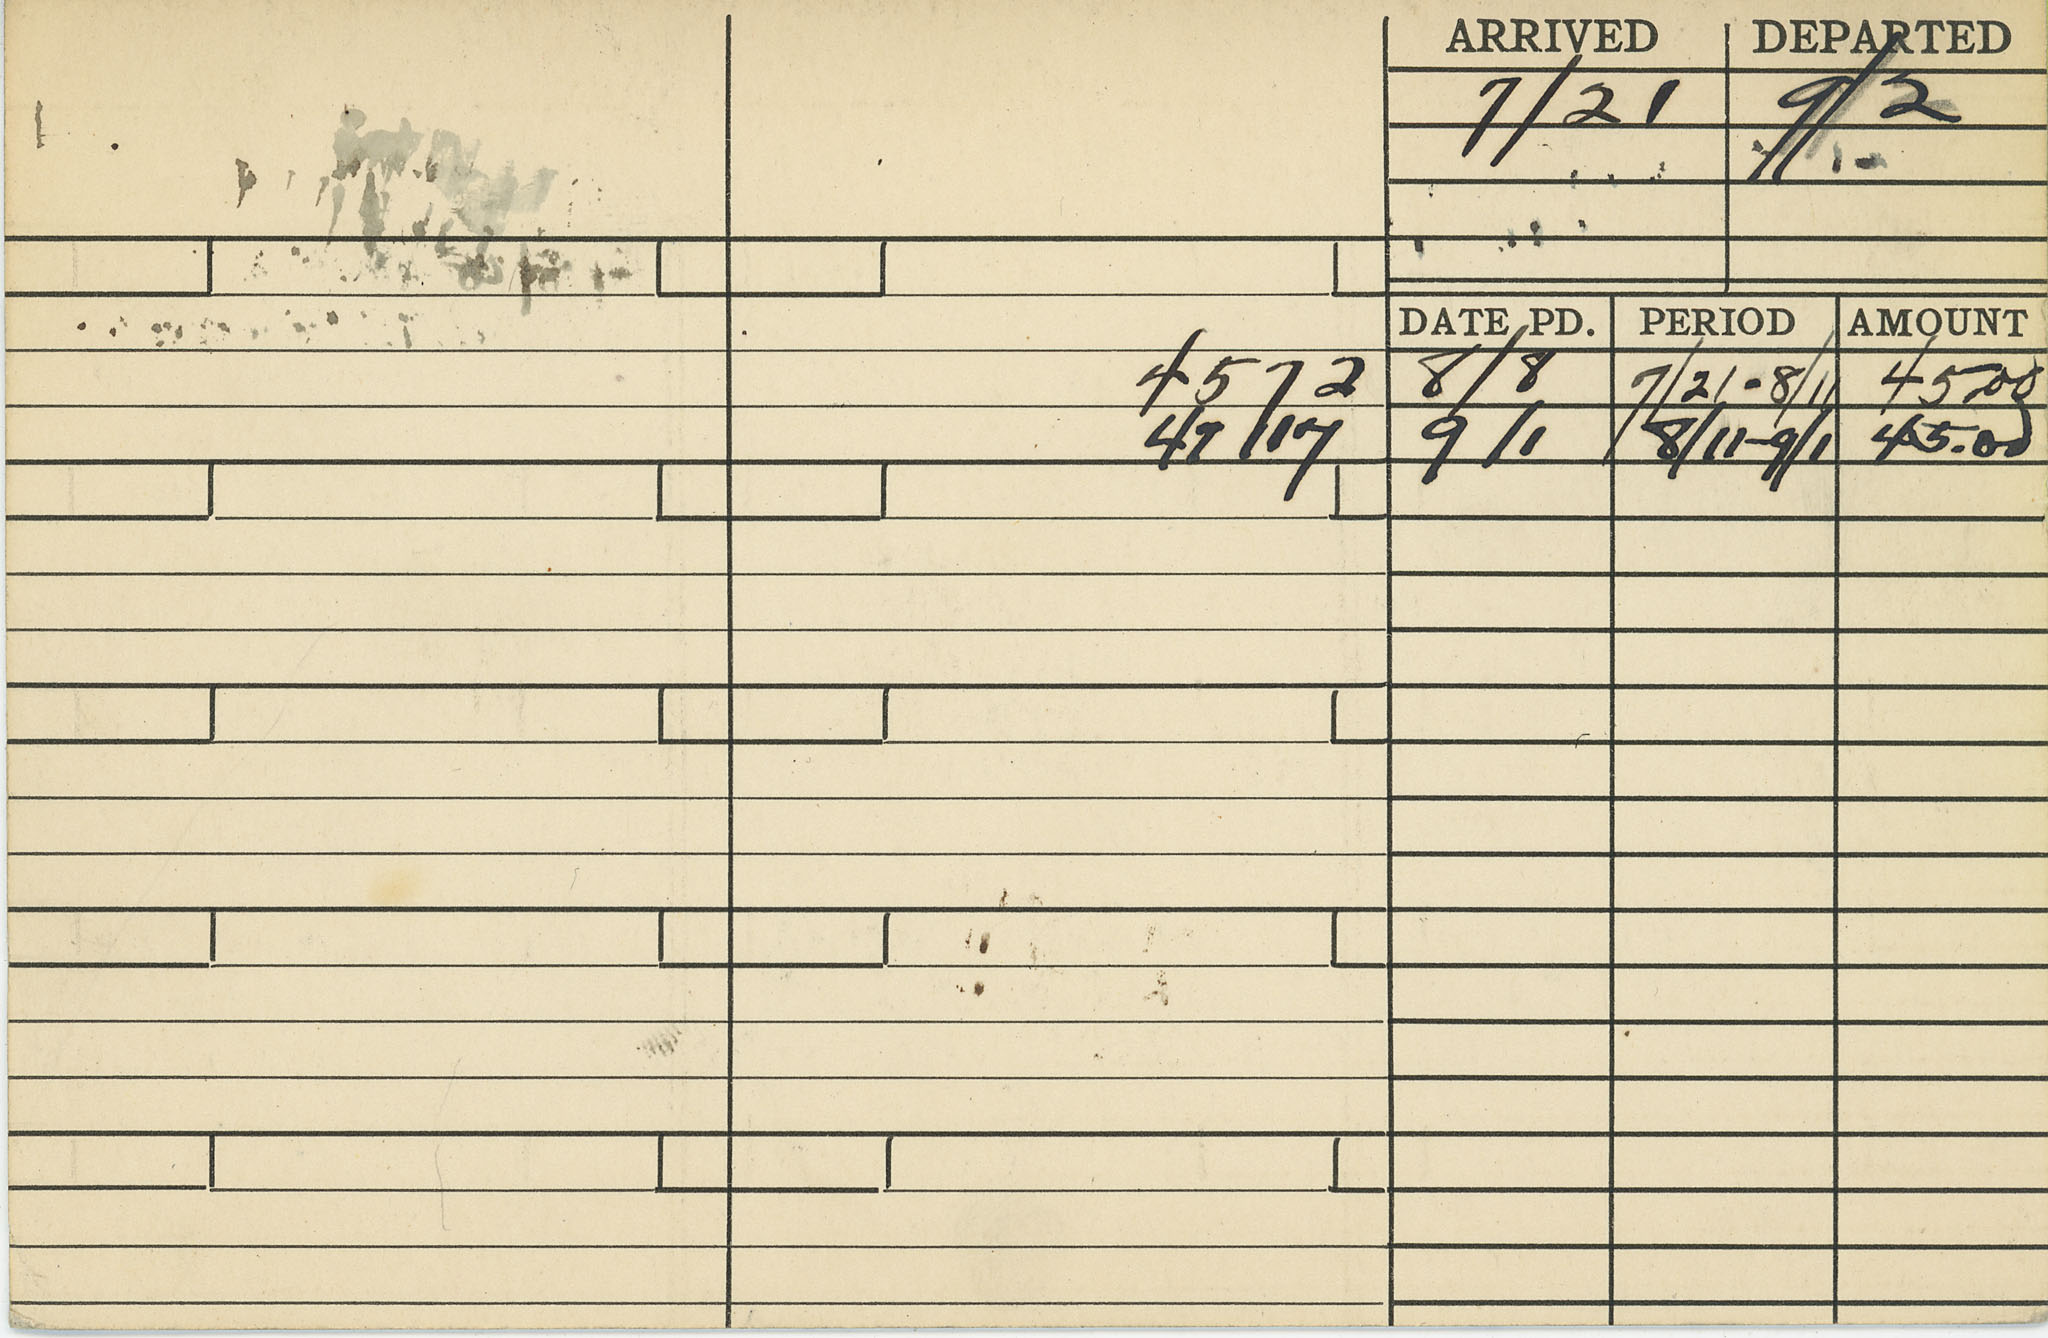 ARRIVED DEPARTED
7/21 9/2
DATE PD. PERIOD AMOUNT
4572 8/8 7/21-8/11 45.00
9/1 8/11-9/1 45.00